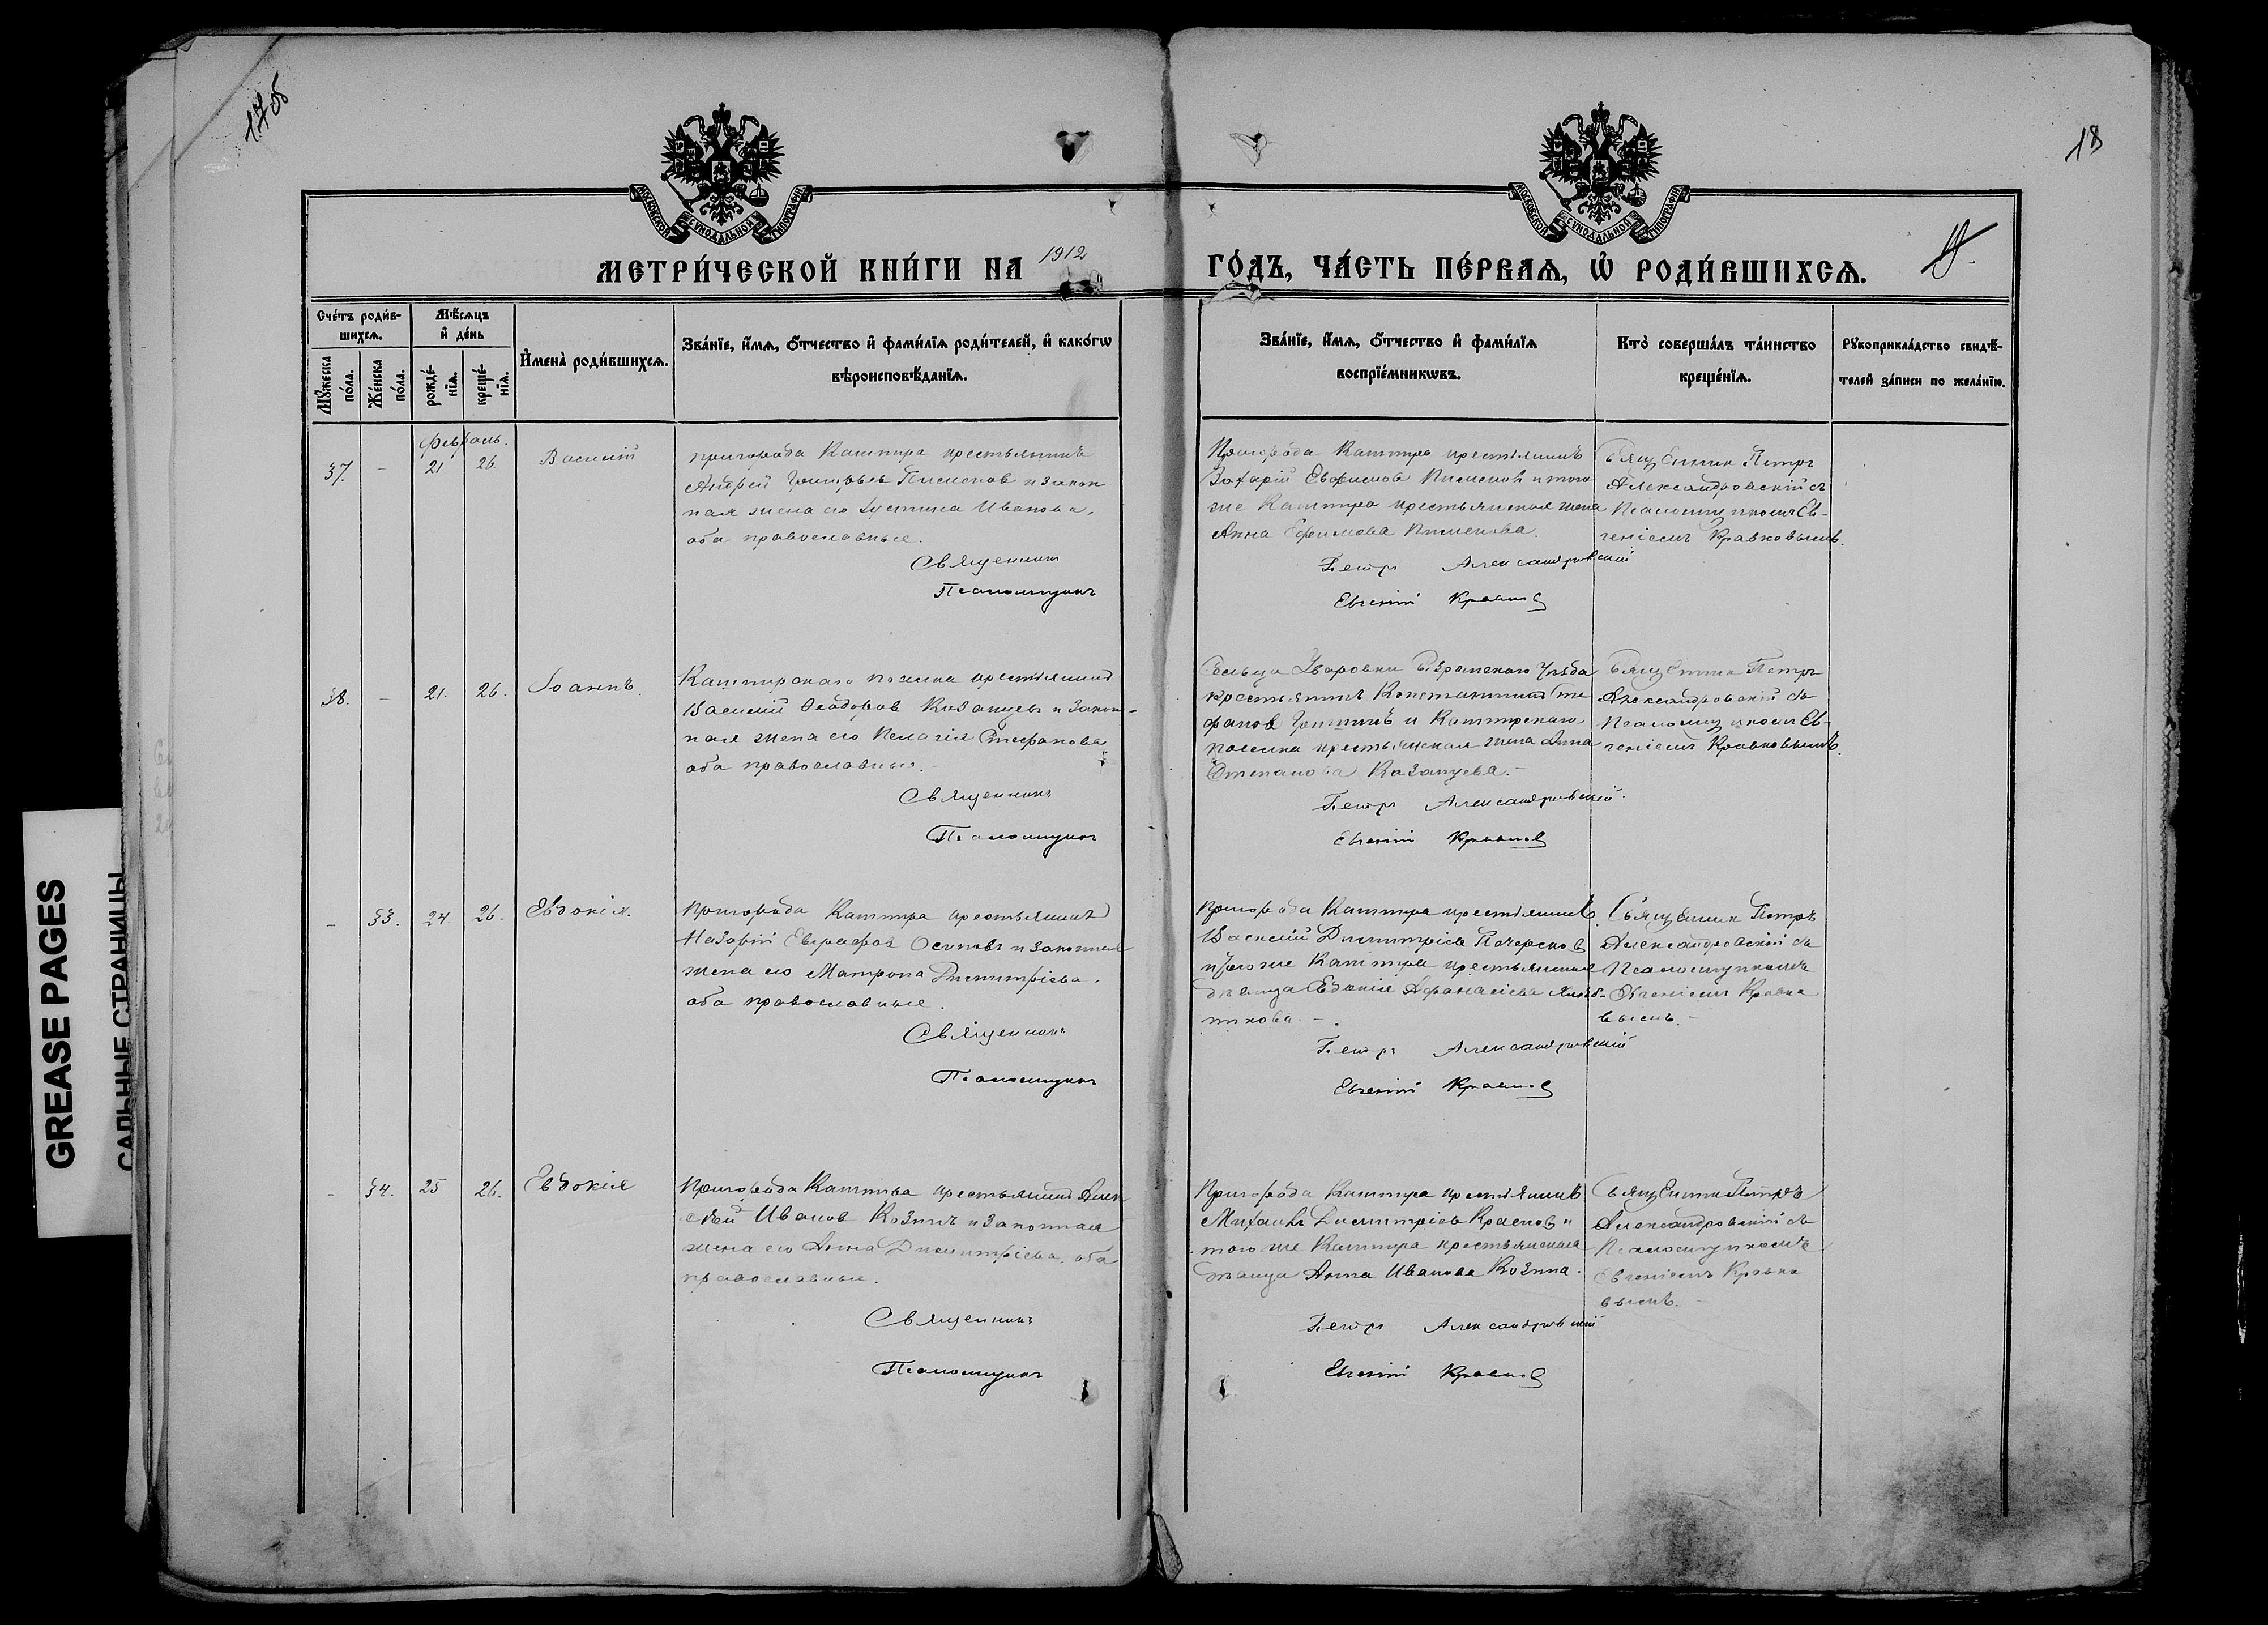 176
18
МОСКОВСКОЙ СѴНОДАЛЬНОЙ ТИПОГРАФІИ
МОСКОВСКОЙ СѴНОДАЛЬНОЙ ТИПОГРАФІИ
МЕТРИ́ЧЕСКОЙ КНИ́ГИ НА 1912 ГО́ДЪ, ЧА́СТЬ ПЕ́РВАѦ, Ѽ РОДИ́ВШИХСѦ.
Сче́тъ роди́в-
шихсѧ.
Мѣ́сѧцъ
и҆ де́нь
Мꙋ́жеска
по́ла.
Же́нска
по́ла.
рожде́-
нїѧ.
креще́-
нїѧ.
И҆мена̀ роди́вшихсѧ.
Зва́нїе, и҆́мѧ, ѻ҆́тчество и҆ фами́лїѧ роди́телей, и҆ како́гѡ
вѣроисповѣ́данїѧ.
Зва́нїе, и҆́мѧ, ѻ҆́тчество и҆ фами́лїѧ
воспрїе́мникѡвъ.
Кто̀ соверша́лъ та́инство
креще́нїѧ.
Рꙋкоприкла́дство свидѣ́-
телей за́писи по жела́нїю.
Февраль.
37. - 21 26. Василій
пригорода Кашпира крестьянинъ
Андрей Григорьевъ Пименов и закон
ная жена его Іустина Иванова,
оба православные.
Священникъ
Псаломщикъ
Пригорода Кашпира крестьянинъ
Захарій Евфимов Пименовъ и того
же Кашпира крестьянская жена
Анна Ефимова Пименова.
Петръ Александровскій
Евгеній Кравков
Священник Петръ
Александровскій съ
Псаломщикомъ Ев-
геніемъ Кравковымъ.
38. - 21. 26. Іоаннъ.
Кашпирскаго поселка крестьянинъ
Василій Ѳеодоров Казанцевъ и закон-
ная жена его Пелагія Стефанова
оба православные.-
Священникъ
Псаломщикъ
Сельца Уваровки Сызранскаго Уѣзда
крестьянинъ Константинъ Сте
фанов Гришинъ и Кашпирскаго
поселка крестьянская жена Анна
Степанова Казанцева.-
Петръ Александровскій.
Евгеній Кравков
Священник Петръ
Александровскій съ
Псаломщикомъ Ев-
геніемъ Кравковымъ.
- 33. 24. 26. Евдокія.
Пригорода Кашпира крестьянинъ
Назарій Евграфов Осиповъ и законная
жена его Матрона Димитріева,
оба православные.
Священникъ
Псаломщикъ
Пригорода Кашпира крестьянинъ
Василій Димитріевъ Печерсков
и того же Кашпира крестьянская
дѣвица Евдокія Афанасіева
Петръ Александровскій
Евгеній Кравков
Священник Петръ
Александровскій съ
Псаломщикомъ
Евгеніемъ Кравко
вымъ.-
- 34. 25 26. Евдокія
Пригорода Кашпира крестьянинъ Алек
сѣй Иванов Козинъ и законная
жена его Анна Димитріева, оба
православные.
Священникъ
Псаломщикъ
Пригорода Кашпира крестьянинъ
Михаилъ Димитріевъ Краснов и
того же Кашпира крестьянская
дѣвица Анна Иванова Козина.
Петръ Александровскій
Евгеній Кравков
Священник Петръ
Александровскій съ
Псаломщикомъ
Евгеніемъ Кравко
вымъ.-
GREASE PAGES
САЛЬНЫЕ СТРАНИЦЫ